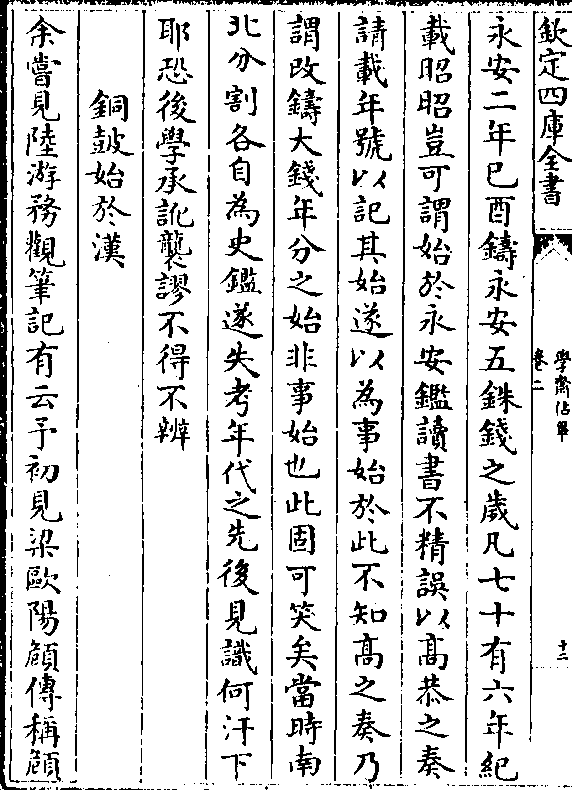 欽定四庫全書
學齋佔畢
卷二
十二
永安二年已酉鑄永安五銖錢之歲凡七十有六年紀
載昭昭豈可謂始於永安鑑讀書不精誤以高恭之奏
請載年號以記其始遂以為事始於此不知高之奏乃
謂改鑄大錢年分之始非事始也此固可笑矣當時南
北分割各自為史鑑遂失考年代之先後見識何汙下
耶恐後學承訛襲謬不得不辨
銅鼓始於漢
余嘗見陸游務觀筆記有云予初見梁歐陽頠傳稱頠